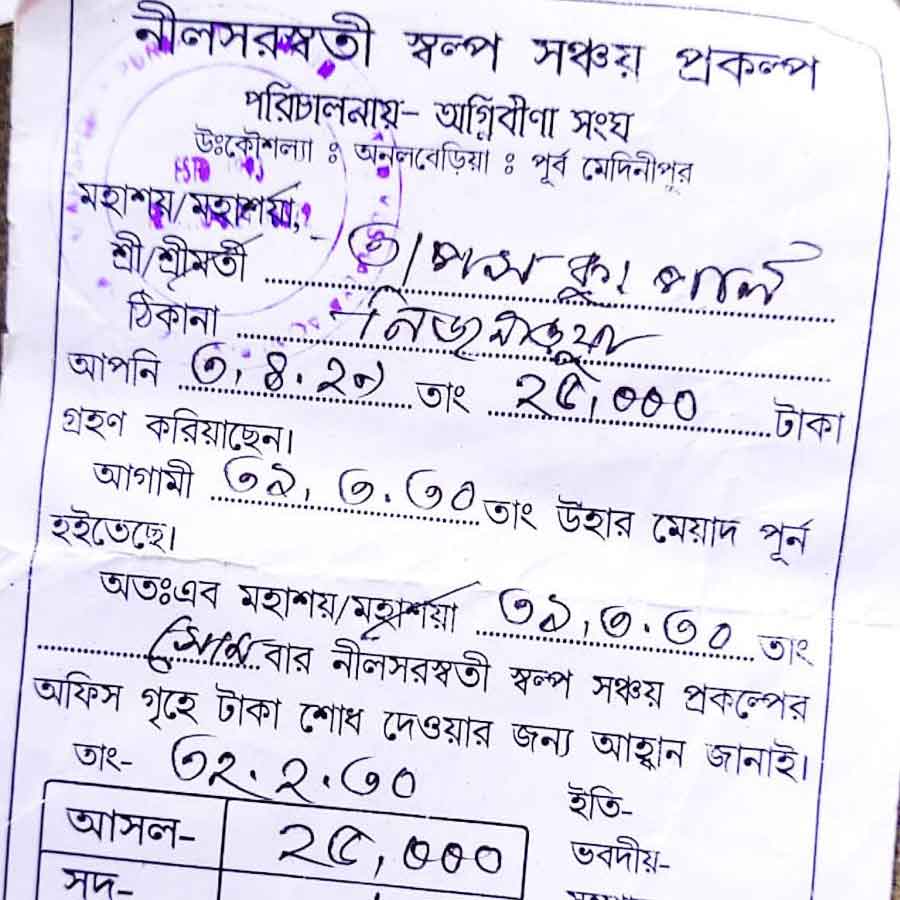 নীলসরস্বতী স্বল্প সঞ্চয় প্রকল্প
পরিচালনায়- অগ্নিবীণা সংঘ
উঃকৌশল্যা : অনলবেড়িয়া : পূর্ব মেদিনীপুর
মহাশয়/মহাশয়া,
শ্রী/শ্রীমতী তাপস কুঃ
ঠিকানা
আপনি তাং ২৫,০০০ টাকা
গ্রহণ করিয়াছেন।
আগামী ৩১, ৩. ৩০ তাং উহার মেয়াদ পূর্ন
হইতেছে।
অতঃএব মহাশয়/মহাশয়া ৩১, ৩. ৩০ তাং
সোম বার নীলসরস্বতী স্বল্প সঞ্চয় প্রকল্পের
অফিস গৃহে টাকা শোধ দেওয়ার জন্য আহ্বান জানাই।
তাং- ৩২. ২. ৩০
ইতি-
আসল- ২৫,০০০
ভবদীয়-
সুদ-